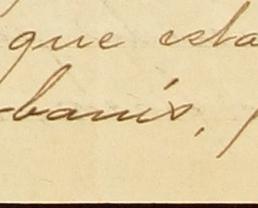 que esta
banís,